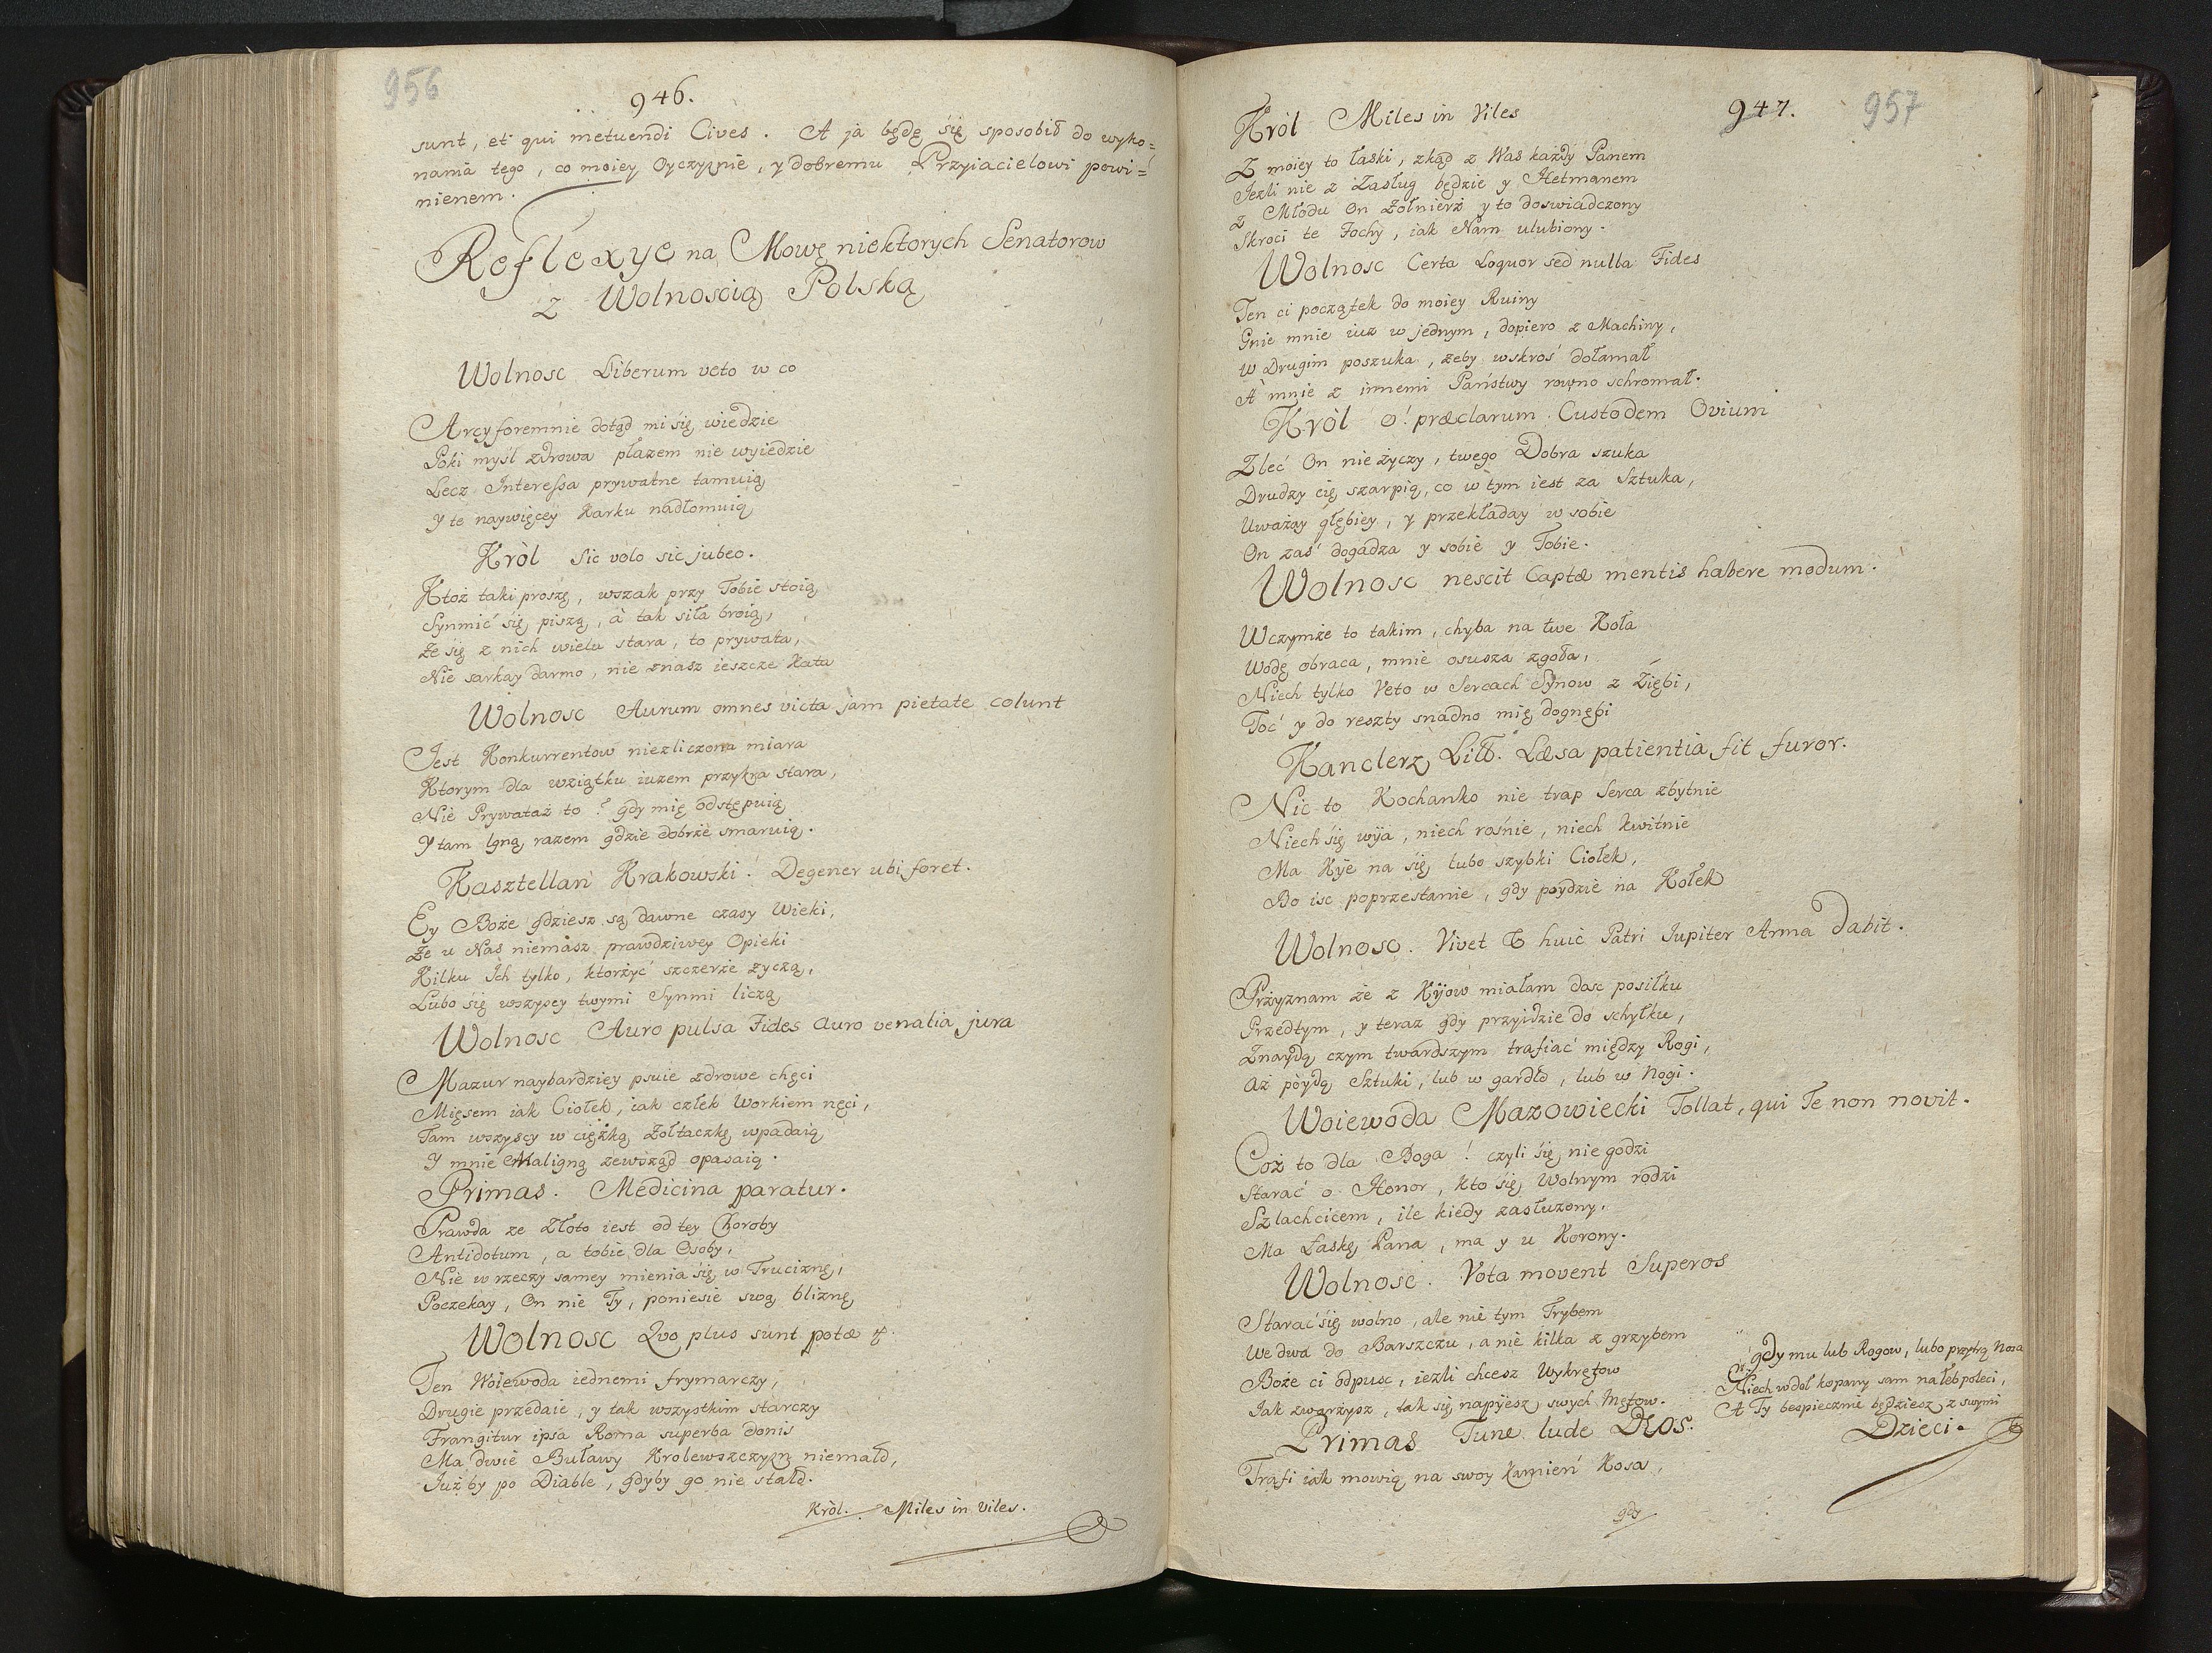 956
946.
sunt, et qui metuendi Cives. A ja będę się sposobił do wyko=
nania tego, co moiey Oyczyznie, y dobremu Przyiacielowi powi=
nienem.
Reflexye na Mowę niektorych Senatorow
z Wolnoscią Polską
Wolnosc Liberum veto w co
Arcyforemnie dotąd mi się wiedzie
Poki mysl zdrowa płazem nie wyiedzie
Lecz Interessa prywatne tamuią
Y te naywięcey Karku nadłomuią
Kròl Sic volo sic jubeo.
Ktoż taki proszę, wszak przy Tobie stoią
Synmić się piszą, à tak siła broią,
Że się z nich wielu stara, to prywata,
Nie sarkay darmo, nie znasz ieszcze Kata
Wolnosc Aurum omnes victa jam pietate colunt
Jest Konkurrentow niezliczona miara
Ktorym dla wziątku iuzem przykra stara,
Nie Prywataż to? gdy mię odstępuią
Y tam lgną razem gdzie dobrze smaruią.
Kasztellan Krakowski. Degener ubi foret.
Ey Boże gdziesz są dawne czasy Wieki,
Że u Nas niemasz prawdziwey Opieki
Kilku Ich tylko, ktorżyć szczerze życzą,
Lubo się wszyscy twymi Synmi liczą
Wolnosc Auro pulsa Fides auro venalia jura
Mazur naybardziey psuie zdrowe chęci
Mięsem iak Ciołek, iak człek Workiem nęci,
Tam wszyscy w ciężką Żołtaczkę wpadaią
Y mnie Maligną zewsząd opasaią.
Primas. Medicina paratur.
Prawda ze Złoto iest od tey Choroby
Antidotum, a tobie dla Osoby,
Nie w rzeczy samey mienia się w Truciznę,
Poczekay, On nie Ty, poniesie swą bliznę
Wolnosc Quo plus sunt potæ
Ten Woiewoda iednemi frymarczy,
Drugie przedaie, y tak wszystkim starczy
Frangitur ipsa Roma superba donis
Ma dwie Buławy Krolewszczyzn niemało,
Już by po Diable, gdyby go nie stało.
Kròl. Miles in viles.
947.
957
Kròl Miles in Viles
Z moiey to łaski, zkąd z Was każdy Panem
Jezli nie z Zasług będzie y Hetmanem
Z Młodu On Żołnierż y to doswiadczony
Skroci te Fochy, iak Nam ulubiony.
Wolnosc Certa Loquor sed nulla Fides
Ten ci początek do moiey Ruiny
Gnie mnie iuz w jednym, dopiero z Machiny,
W Drugim poszuka, zeby wskroś dołamał
A mnie z innemi Państwy rowno schromał.
Kròl O! præclarum Custodem Ovium
Zleć On nie życzy, twego Dobra szuka
Drudzy cię szarpią, co w tym iest za Sztuka,
Uważay głębiey, y przekładay w sobie
On zaś dogadza y sobie y Tobie.
Wolnosc nescit Captæ mentis habere modum.
Wczymże to takim, chyba na twe Koła
Wodę obraca, mnie osusza zgoła,
Niech tylko Veto w Sercach Synow z Ziębi,
Toć y do reszty snadno mię dognębi
Kanclerz Litt. Læsa patientia fit furor.
Nic to Kochanko nie trap Serca zbytnie
Niech się wija, niech rośnie, niech kwitnie
Ma Kije na się lubo szybki Ciołek,
Bo isc poprzestanie, gdy poydzie na Kołek
Wolnosc. Vivet & huic Patri Jupiter Arma dabit.
Przyznam że z Kijow miałam dosc posiłku
Przedtym, y teraz gdy przyidzie do schyłku,
Znaydą czym twardszym trafiać między Rogi,
Aż pòydą Sztuki, lub w gardło, lub w Nogi.
Woiewoda Mazowiecki Tollat, qui Te non novit.
Coż to dla Boga! czyli się nie godzi
Starać o Honor, kto się Wolnym rodzi
Szlachcicem, ile kiedy zasłuzony,
Ma Łaskę Pana, ma y u Korony.
Wolnosc. Vota movent Superos
Starać się wolno, ale nie tym Trybem
We dwa do Barszczu, a nie kilka z grzybem
Boże ci odpusc, iezli chcesz Wykrętow
Jak zwarzysz, tak się napijesz swych Mętow.
Primas Tunc lude
Trafi iak mowią na swoy kamień Kosa,
gdy
gdy mu lub Rogow, lubo przytrą Nosa
Niech w doł kopany sam na łeb poleci,
A Ty bespiecznie będziesz z swymi
Dzieci.